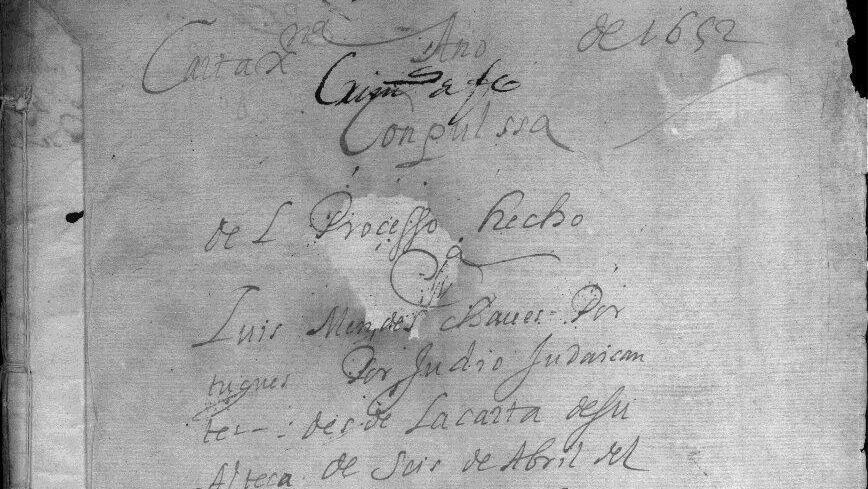 Cartax.na Año de 1652
Crim
Conpulssa
de L Processo hecho
Ca
Luis Mendes Chaues Por
tugues Por Judio Judaican
te desde La carta de su
Alteça de Seis de Abril del